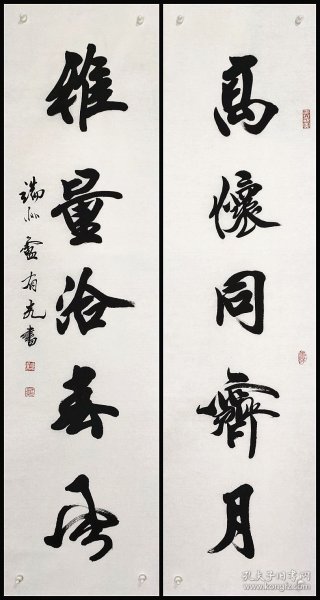 高懷同霽月
雅量洽春風
端州盧有光書
孔夫子旧书网